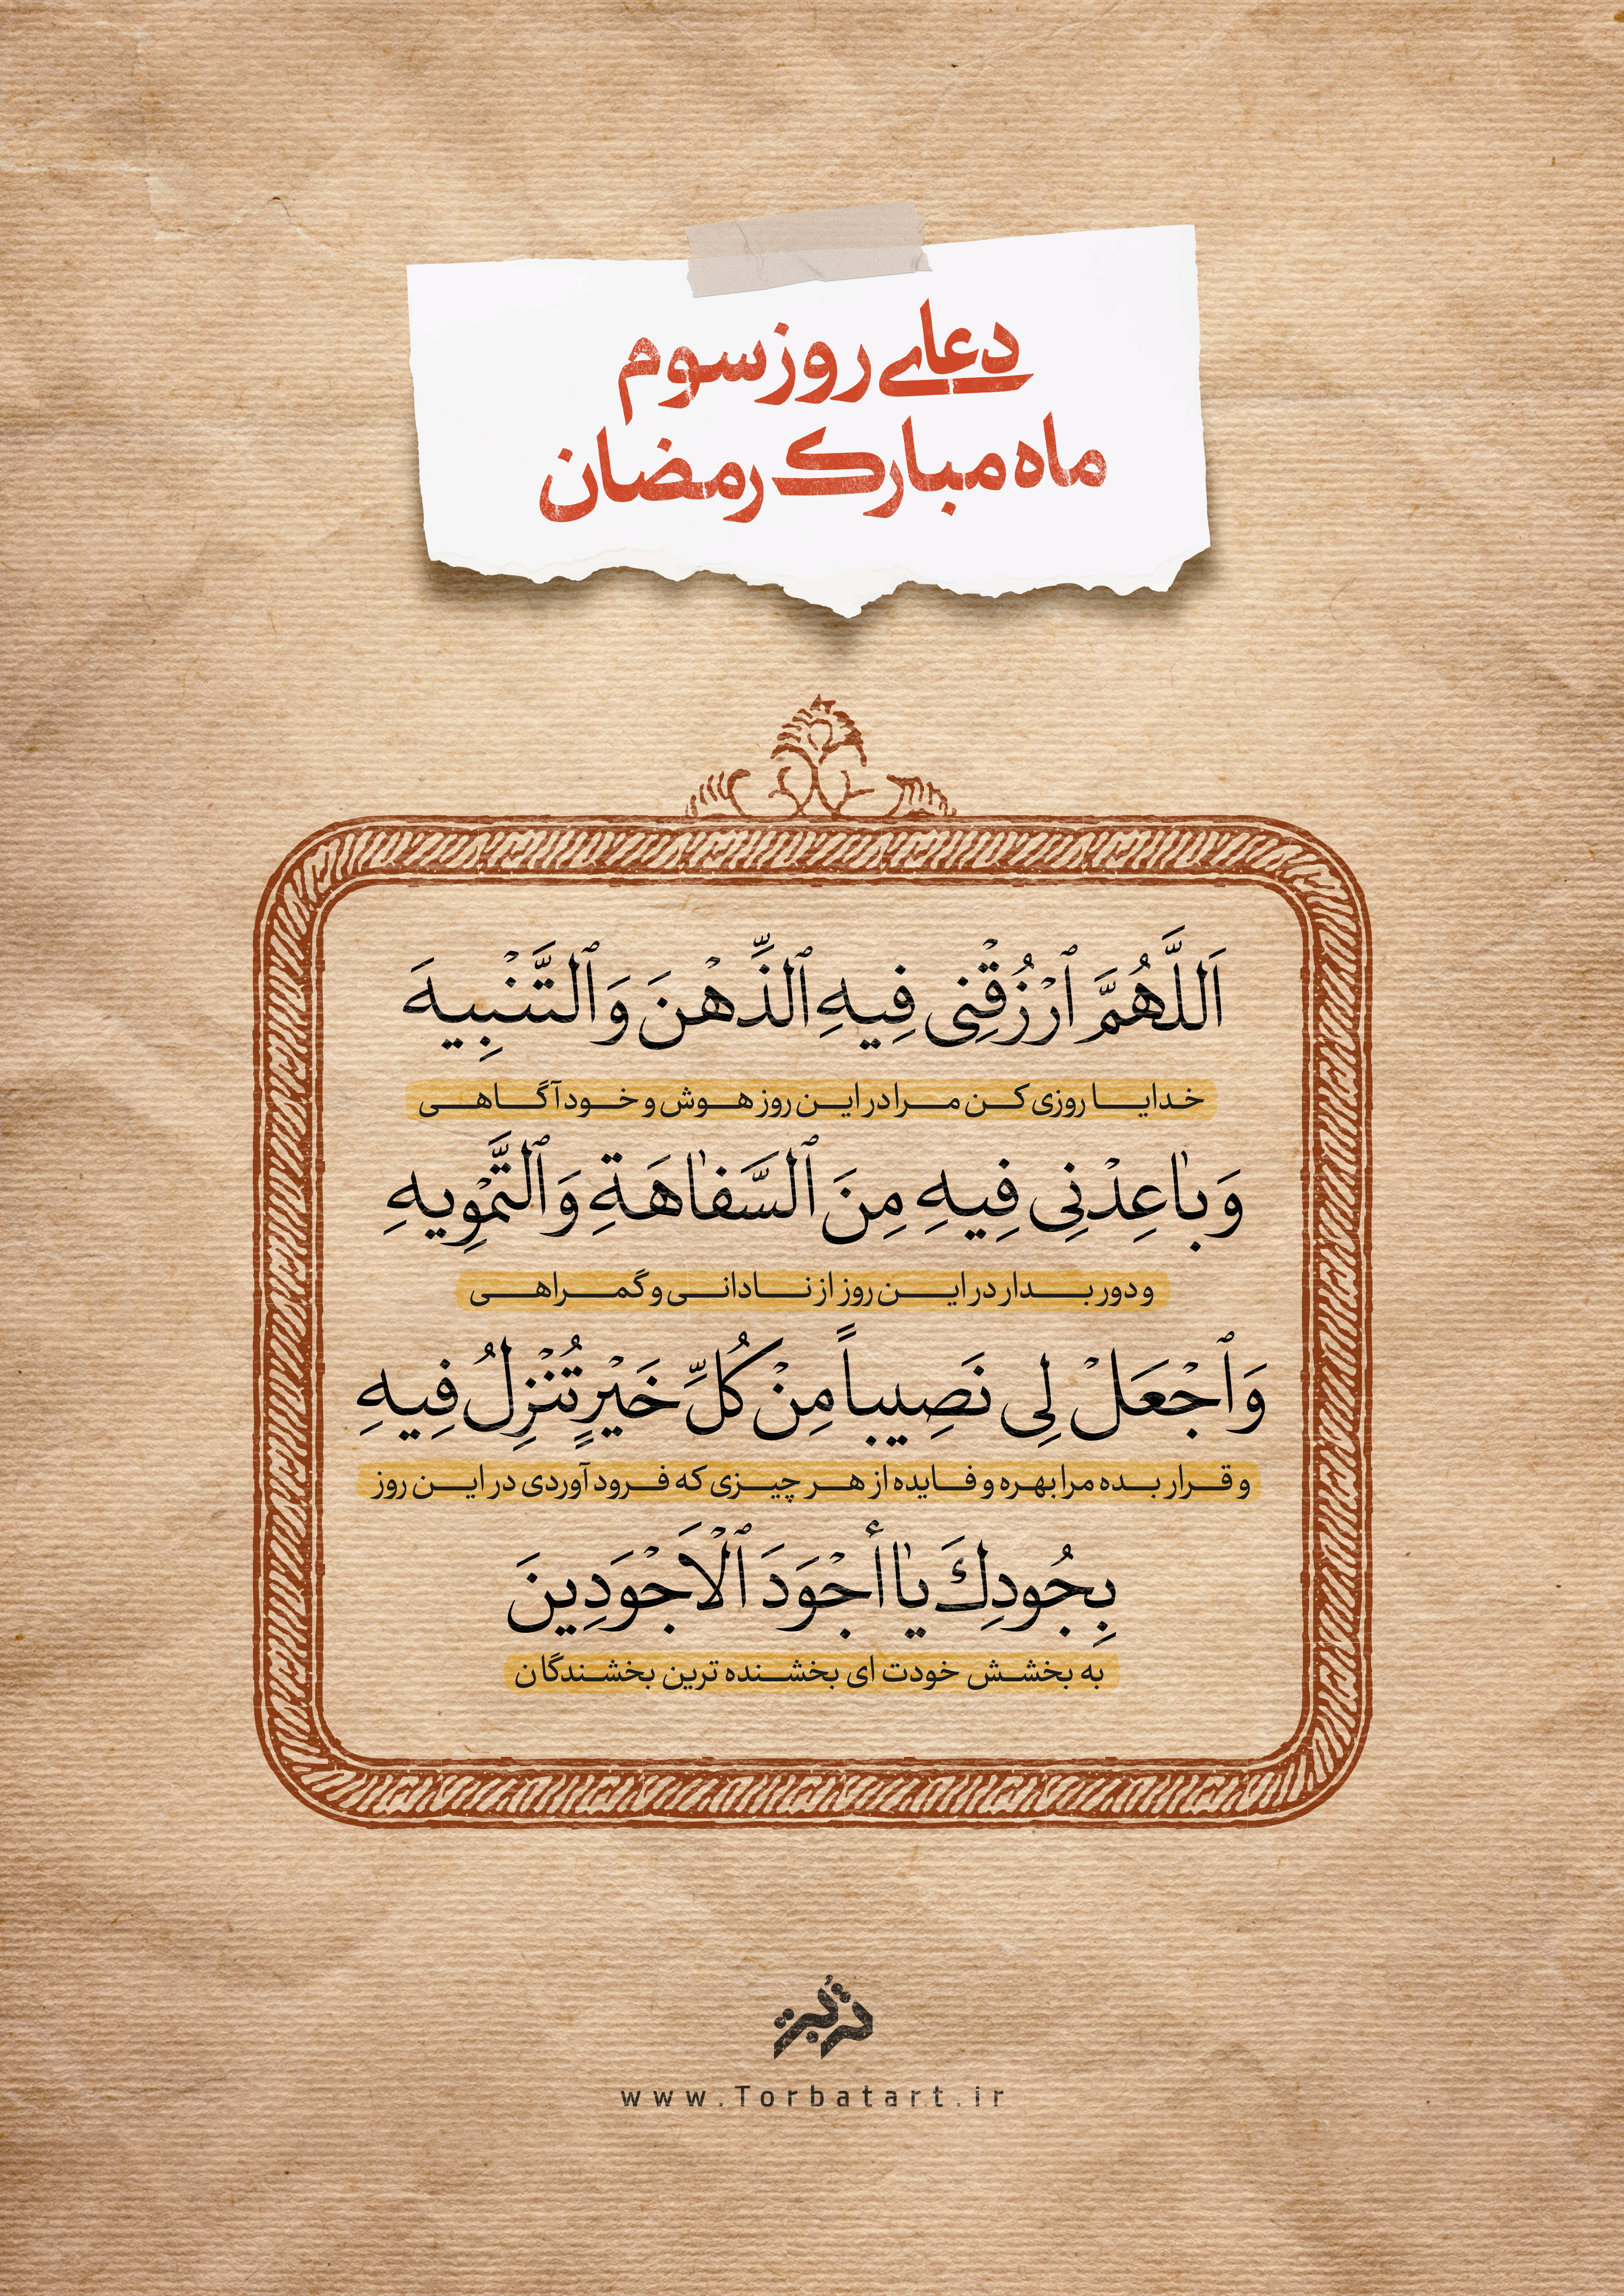 دعای روز سوم
ماه مبارک رمضان
اَللَّهُمَّ ٱرْزُقْنِی فِیهِ ٱلذِّهْنَ وَٱلتَّنْبِیهَ
خدایا روزی کن مرا در این روز هوش و خودآگاهی
وَبٰاعِدْنِی فِیهِ مِنَ ٱلسَّفٰاهَةِ وَٱلتَّمْوِیهِ
و دور بدار در این روز از نادانی و گمراهی
وَٱجْعَلْ لِی نَصِیباً مِنْ كُلِّ خَیْرٍ تُنْزِلُ فِیهِ
و قرار بده مرا بهره و فایده از هر چیزی که فرود آوردی در این روز
بِجُودِكَ یٰا أَجْوَدَ ٱلْاَجْوَدِینَ
به بخشش خودت ای بخشنده ترین بخشندگان
تربت
www.Torbatart.ir